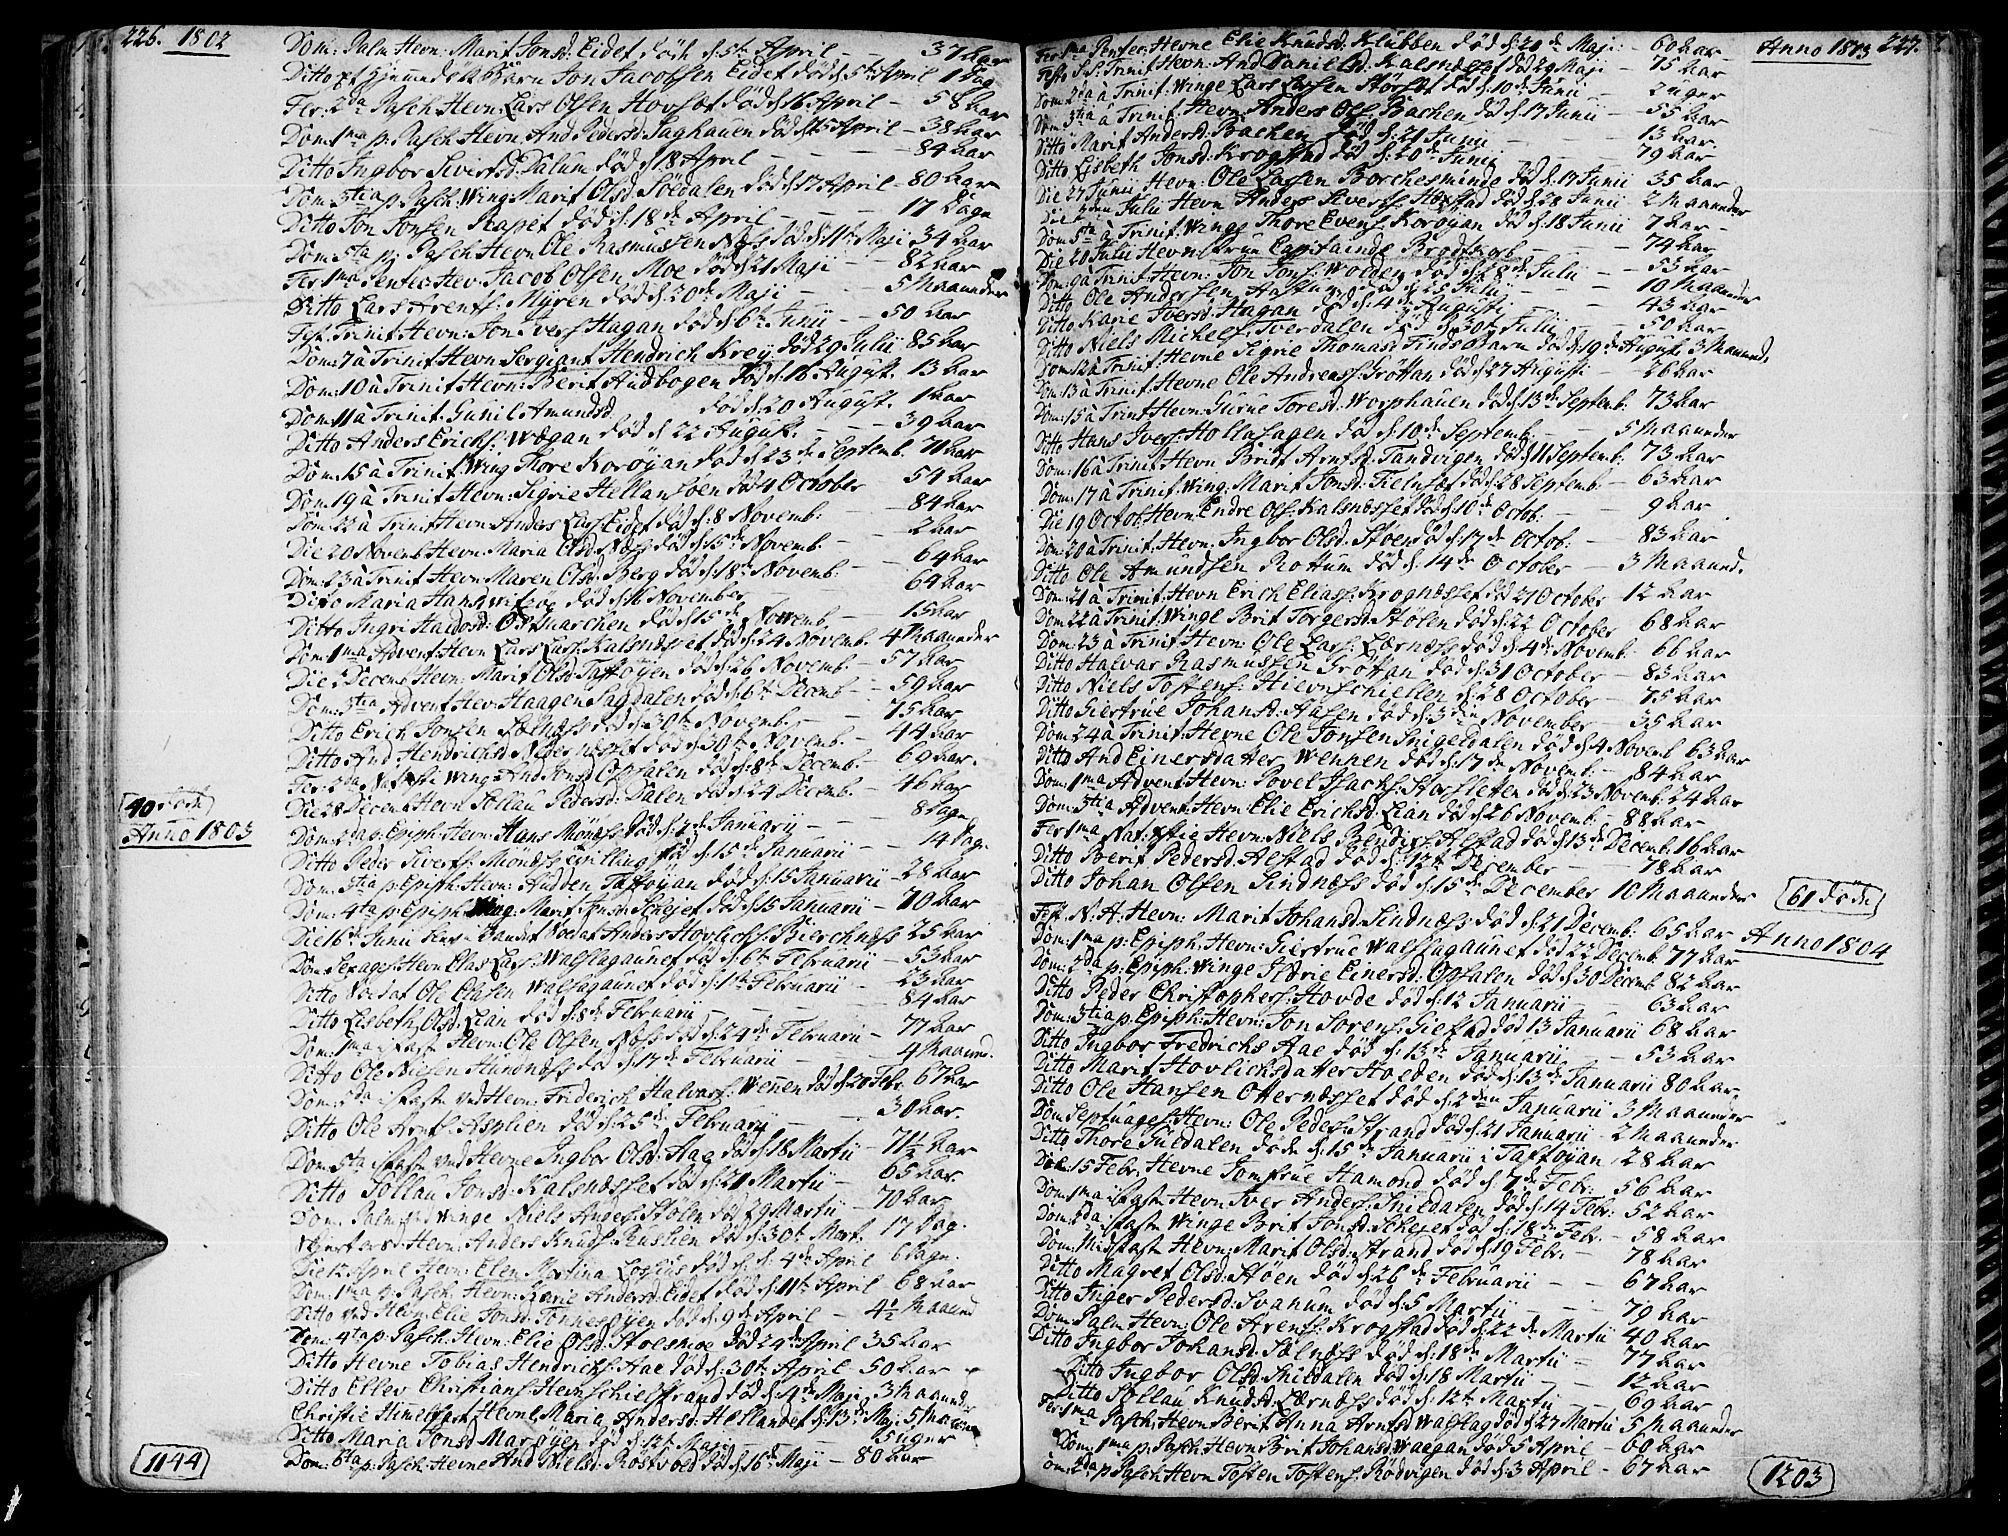 226. 1802
Dom: Palm Hevn: Marit Jonsd: Eidet død d: 5te April — 37 Aar
Ditto Jon Jacobsen Eidet død d: 5te April 1 Dag
Fer: 2da Pasch: Hevn: Lars Olsen Hovset død d: 16 April — 58 Aar
Dom: 1ma p: Pasch: Hevn: And Pedersd: Saghauen død d: 15 April — 38 Aar
Ditto Ingbor Siversd: Dalum død d: 18 April — 84 Aar
Dom: 3tia p: Pasch: Wing: Marit Olsd: Södalen død d: 17 April — 80 Aar
Ditto Jon Jonsen død d: 18de April — 17 Dage
Dom: 5ta p: Pasch Hevn Ole Rasmussen Næss død d: 11te Maji 34 Aar
Fer: 1ma Pentec: Hev: Jacob Olsen Moe død d: 21 Maji — 82 Aar
Ditto Lars Arents: Myren død d: 20de Maji — 5 Maaneder
Fest: Trinit: Hevn: Jon Ivers: Hagan død d: 6te Junii — 50 Aar
Dom: 7 à Trinit Hevn: Sergiant Hendrich Krey død 29 Julii 85 Aar
Dom: 10 à Trinit Hevn: Berit Audbogen død d: 16 August. 13 Aar
Dom: 11 à Trinit: Gunil Amundsd: død d: 20 August. 1 Aar
Ditto Anders Erichs: Wægan død d: 22 August. — 39 Aar
Dom: 15 à Trinit Wing Thore Korøyan død d: 23de Septemb: 71 Aar
Dom: 19 à Trinit: Hevn: Sigrie Hellan død 4 October 54 Aar
Dom: 22 à Trinit Hevn: Anders Lars: Eidet død d: 8 Novemb: — 84 Aar
Die 20 Novemb Hevn: Maria Olsd: Næss død d: 15de Novemb: — 2 Aar
Dom: 23 à Trinit Hevn Maren Olsd: Berg død d: 18de Novemb: — 64 Aar
Ditto Maria Hansd: død d: 16 November — 64 Aar
Ditto Ingri Haldosd: Ostmarchen død d: 15de Novemb: — 15 Aar
Dom: 1ma Advent: Hevn Lars Lars: Kalsnesset død d: 24 Novemb: 4 Maaneder
Die Decemb Hevn: Marit Olsd: Taftøyen død d: 26 Novemb: — 57 Aar
Dom: 3tia Advent Hev: Haagen Sagdalen død d: 6te Decemb — 59 Aar
Ditto Erich Jonsen død d: 30te Novembr — 75 Aar
Ditto And Hendrichsd: død d: 30te Novemb. — 44 Aar
Fer: 2da Wing: And Jonsd: Opsalen død d: 8de Decemb: — 69 Aar.
Die 28 Decemb Hevn Sollau Pedersd: Dalen død d: 24 Decemb: — 46 Aar
40 Døde
Anno 1803
Dom: 2da p: Epiph: Hevn: Hans død d: 2de Januarii — 8 Dage
Ditto Peder Siverts: Mønæss død d: 15de Januarii — 14 Dage
Dom: 3tia p: Epiph: Hevn: Audden Taftøyan død d: 15 Januarii — 28 Aar
Dom: 4ta p: Epiph: Wing: Marit Jonsd: død d: 15 Januarii — 70 Aar
Die 16de Junii Hevn Anders Hovlichs: Bierchnæss 25 Aar
Dom: Sexages: Hevn Elias Lars: Walslagaunet død d: 6te Februarii — 53 Aar
Ditto Soldat Ole Olsen Walslagaunet død d: 1te Februarii — 23 Aar
Ditto Lisbeth Olsd: Lian død d: 8de Februarii — 84 Aar
Dom: 1ma i faste Hevn: Ole Olsen Næss død d: 24de Februarii — 77 Aar
Ditto Ole Nielsen død d: 17de Februarii — 4 Maaned.
Dom: 2da i faste ved Hevn: Friderich Halvars: Wennen død d: 20 Febr: 67 Aar
Ditto Ole Arnts: Asplien død d: 25de Februarii — 30 Aar.
Dom: 5ta i faste ved Hevne Ingbor Olsd: Aae død d: 18 Martii — 71½ Aar
Ditto Sollau Jonsd: Kalsnesset død d: 21 Martii — 65 Aar.
Dom: Palm: ved Winge Niels Anders: Stølen død 29 Martii — 70 Aar
Skiertorsd: Hevn: Anders Knuds: død d: 30te Mart. 17 Dage.
Die April Hevn: Elen Martina død d: 4de April 6 Dage.
Dom: 1ma p: Pasch: Hevn: Marie Andersd: Eidet død d: 11te April 68 Aar
Ditto ved Hevn: Elie Jonsd: Fonnesøyen død d: 9de April — 4½ Maaned
Dom: 4ta p: Pasch: Hevn: Elie Olsd: død 24de April 35 Aar
Ditto Hevne Tobias Hendrichs: Aae død d: 30te April — 50 Aar
Ditto Ellev Christians: død d: 4de Maji 3 Maaneder
Christie Himelfart Hevne Maria Andersd: Hellandet d: 13de Maji 5 Maaneder
Ditto Maria Jonsd Marøyen død d: 12te Maji — 15 uger
Dom: 6ta p: Pasch: Hevne And Nielsd: Rostvold død d: 16de Maji — 80 Aar
1144
Anno 1803 227.
Fer: 1ma Pentec: Hevne Elie Knudsd: Klubben død d: 20de Maji — 60 Aar
Festo S.S. Trinit Hevn: And Danielsd: Kalsnesset død 29 Maji — 75 Aar
Dom: 2da à Trinit: Winge Lars Larsen død d: 10de Junii — 2 uger
Dom: 3tia à Trinit: Hevn: Anders Ols: Bachen død d: 17 Junii — 55 Aar
Ditto Marit Andersd: Bachen død d: 21 Junii — 13 Aar.
Ditto Lisbeth Jonsd: Krogstad død d: 20de Junii — 79 Aar
Die 27 Junii Hevn: Ole Larsen Borchesminde død d: 19 Junii 35 Aar
Die 2den Julii Hevn Anders Siverts: død d: 28 Junii 2 Maaneder
Dom: 5ta à Trinit: Winge Thore Evens: Korøyan død d: 18 Junii 7 Aar
Die 20 Julii Hevn: Capitainde Brodtkorb — 74 Aar
Dom: 9 à Trinit: Hevn: Jon Jons: Wolden død d: 28de Julii — 53 Aar
Ditto Ole Andersen død d: 25 Julii — 10 Maaneder
Ditto Karie Iversd: Hagan død d: 4de Augusti — 43 Aar
Ditto Niels Michels: Tverdalen død d: 30te Julii — 50 Aar
Dom: 12 à Trinit: Hevne Sigrie Thomasd: Barn død d: 19de August: 3 Maaned.
Dom: 13 à Trinit: Hevne Ole Andreas: Grøttan død d: 27 August: — 26 Aar
Dom: 15 à Trinit: Hevn: Gurue Toresd: Worphauen død d: 13de Septemb: 73 Aar
Ditto Hans Ivers: Hollasagen død d: 10de Septemb: — 5 Maaneder
Dom: 16 à Trinit: Hevn Brit Arntsd: Tandvigen død d: 11 Septemb: 73 Aar
Dom: 17 à Trinit: Wing: Marit Jonsd: død d: 28 Septemb: — 63 Aar
Die 19 Octob: Hevn: Endre Ols: Kalsnesset død d: 10de Octob: — 9 Aar
Dom: 20 à Trinit: Hevn: Ingbor Olsd: Støen død d: 17de Octob: — 83 Aar
Ditto Ole Amundsen Rottum død d: 14de October — 3 Maaned.
Dom: 21 à Trinit: Hevn Erich Elias: Krognesset død 21 October 12 Aar
Dom: 22 à Trinit: Winge Brit Torgersd: Stølen død d: 22 October 68 Aar
Dom: 23 à Trinit: Hevn: Ole Lars: Lernæss død d: 4de Novemb: 66 Aar
Ditto Halvar Rasmussen Grøttan død d: 31 October — 83 Aar
Ditto Niels Tostens: Hievnschiellen d: 28 October — 75 Aar
Ditto Giertrue Johansd: Aasen død d: 3die November — 35 Aar
Dom: 24 à Trinit: Hevne Ole Jonsen Snigeldalen død d: 4 Novemb 63 Aar
Ditto And Einersdatter Wennen død d: 17de Novemb: — 84 Aar
Dom: 1ma Advent: Hevn: Povel Isachs: død d: 23 Novemb: 24 Aar
Dom: 3tia Advent: Hevn: Elie Erichsd: Lian død d: 26 Novemb: — 88 Aar
Fer: 1ma Nat: Hevn: Niels Benders: Alstad død d: 13de Decemb: 16 Aar
Ditto Berit Pedersd: Alstad død d: 12te December — 78 Aar
Ditto Johan Olsen Sindnæss død d: 15de December 10 Maaneder
61 døde
Anno 1804
Fest: N. A. Hevn: Marit Johansd: Sindnæss: død d: 21 Decemb: 65 Aar
Dom: 1ma p: Epiph: Hevn: Giertrue Walslagaunet død 22 Decemb: 77 Aar
Dom: 2da p: Epiph: Winge Astrie Einersd: Opsalen død d: 30 Decemb 82 Aar
Ditto Peder Christophers: Hovde død d: 12 Januarii — 63 Aar
Dom: 3tia p: Epiph: Hevn: Jon Sorens: død 13 Januarii 68 Aar
Ditto Ingbor Fredrichs Aae død d: 13de Januarii — 53 Aar
Ditto Marit Hovlichsdatter Holden død d: 13de Januarii 80 Aar.
Ditto Ole Hansen Otternesset død d: 2den Januarii 3 Maaneder
Dom Septuages: Hevn: Ole Peders: Strand død d: 21 Januarii 2 Maaneder
Ditto Thore Suldalen døde d: 15de Januarii i Taftøyan 28 Aar
Die 15 Febr: Hevne Jomfrue Hamond død d: 7de Febr: 56 Aar
Dom: 1ma i faste Hevn: Iver Anders: Snildalen død d: 14 Febr: 52 Aar
Dom: 2da i faste Winge Brit Jonsd: død d: 18de Febr: 58 Aar
Dom: Midfaste Hevn: Marit Olsd: Strand død d: 19 Febr: — 78 Aar
Ditto Magret Olsd: Støen død d: 26de Februarii — 67 Aar
Ditto Inger Pedersd: Svanum død d: 5 Martii — 79 Aar
Dom: Palm Hevn: Ole Arents: Krogstad død d: 22de Martii 40 Aar
Ditto Ingbor Johansd: død d: 18de Martii — 77 Aar
Ditto Ingbor Olsd: død d: 18 Martii — 12 Aar
Ditto Sollau Knudsd: Lernæss død d: 12te Martii — 69 Aar
Fer: 1ma Pasch: Hevn Berit Anna Arntsd Walslag død d: 27 Martii 5 Maaneder
Dom: 1ma p: Pasch: Hevn: Brit Johansd: Waagan død 5 April — 60 Aar
Dom: 2da p: Pasch: Hevn Tosten Tostens: Rødvigen død d: 3 April — 67 Aar
1203